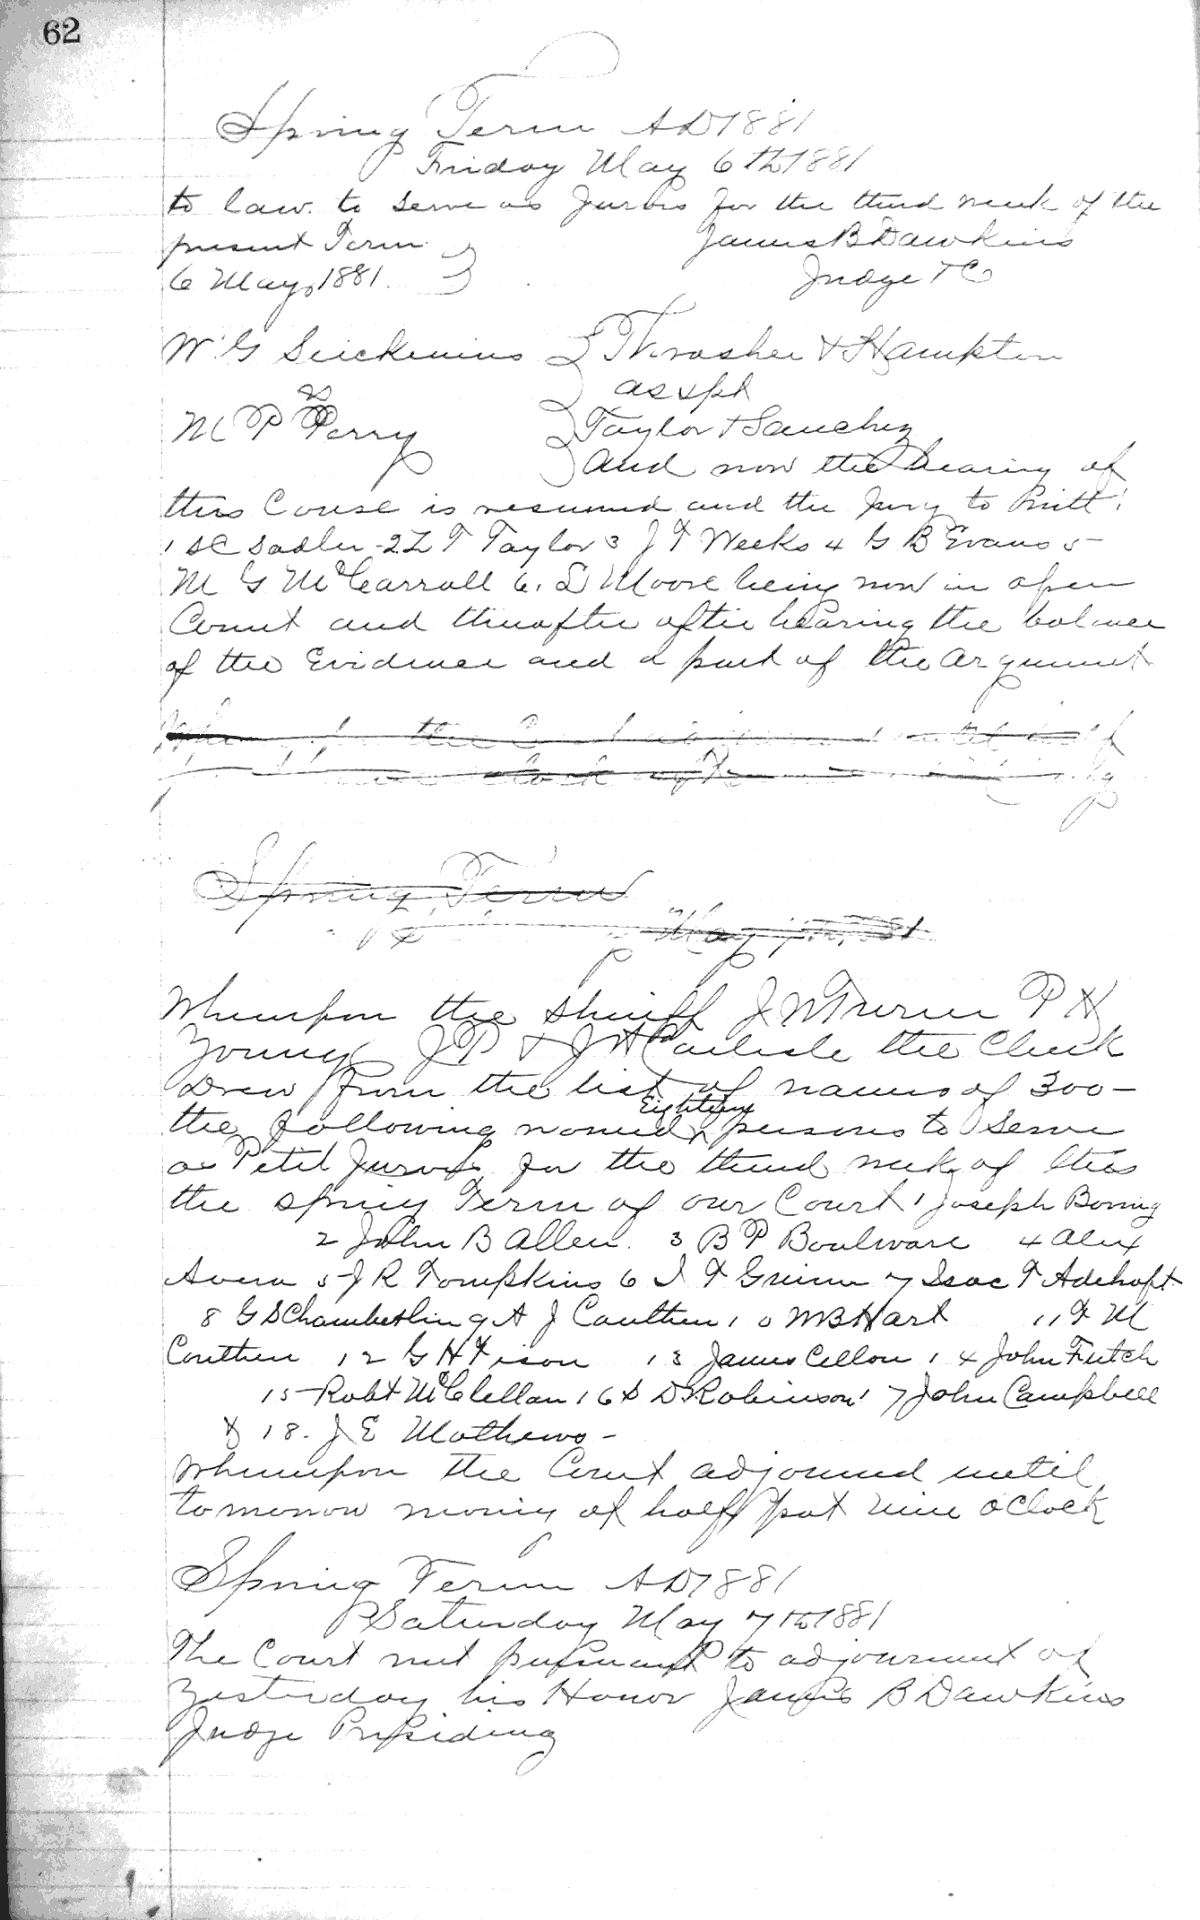 62
Spring Term AD 1881
Friday May 6th 1881
to law. to serve as Jurors for the third week of the
present Term James B Dawkins
6 May 1881. Judge &c
W. G. Thrasher & Hampton
vs as spl
M P Perry Taylor & Sanchez
and now the hearing of
this Couse is resumed and the Jury to Witt:
1 S C Sadler 2 L T Taylor 3 J F Weeks 4 G B Evans 5
M G McCarroll 6. S Moore being now in open
Court and thereafter after hearing the balance
of the Evidence and a part of the Argument
the Court adjourned until half
Spring Term
May 7th, 1881
Whereupon the Sheriff J W Turner P H
Young J P & J A Carlisle the Clerk
Drew from the list of names of 300-
the following named Eighteen persons to Serve
as Petit Jurors for the third week of this
the Spring Term of our Court 1 Joseph Boring
2 John B Allen. 3 B P Boulware 4 Alex
Avera 5 J R Tompkins 6 J F Grimm 7 Isac T
8 G S Chamberlin 9 A J Cauthen 10 M B Hart 11 F M
Couthen 12 G H Tison 13 James Cellon 14 John Futch
15 Robt McClellan 16 S D Robinson 17 John Campbell
& 18. J E Mathews -
Whereupon the Court adjourned until
tomorrow morning of half past nine oClock
Spring Term AD 1881
Saturday May 7th 1881
The Court met pursuant to adjournment of
Yesterday his Honor James B Dawkins
Judge Presiding